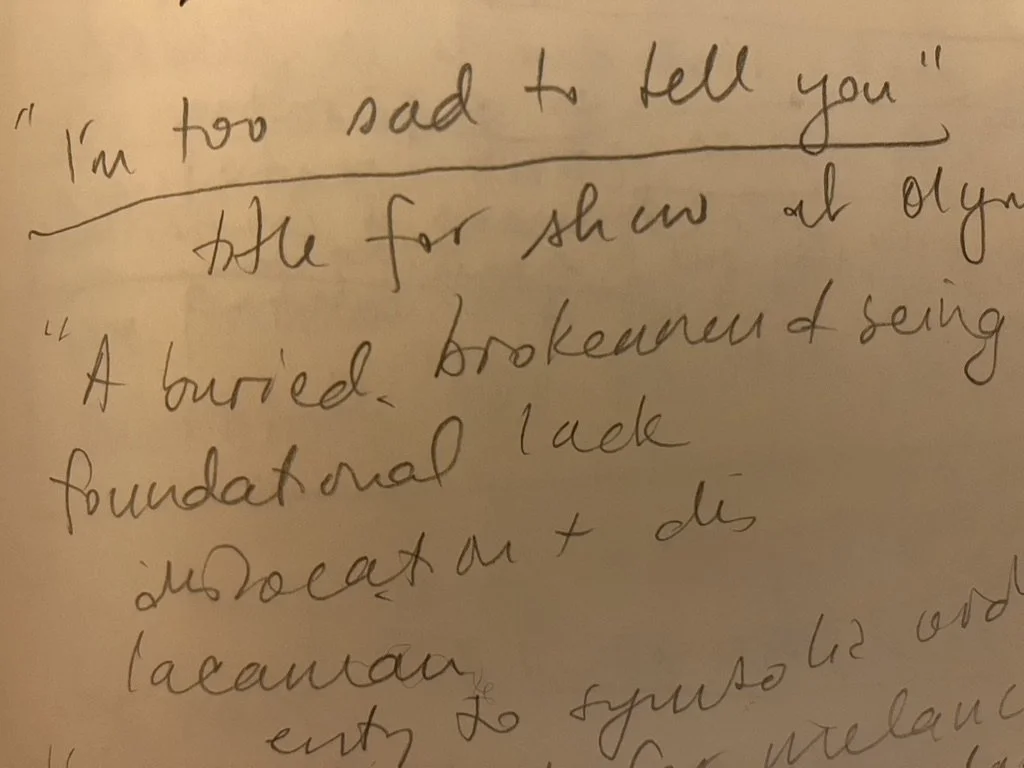 "I'm too sad to tell you"
title for show at Olym
"A buried brokenness of being
foundational lack
+ dis
lacanian
entry to symbolic ord
for melanc